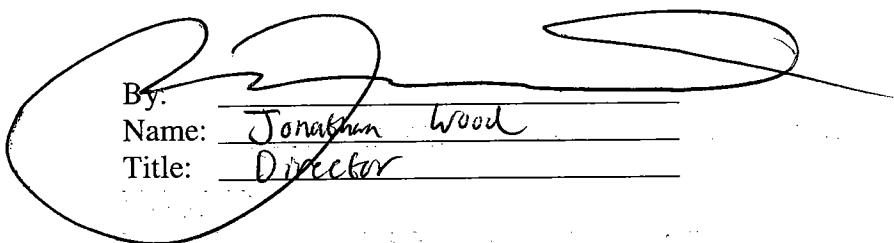 By:
Name: Jonathan Wood
Title: Director